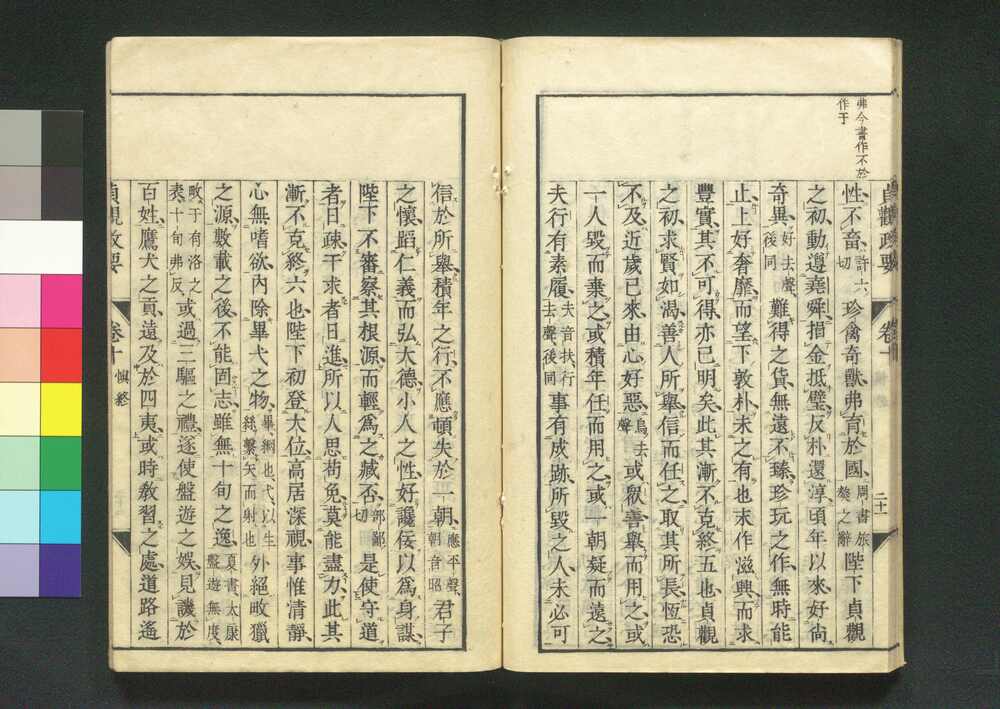 弗今書作不於
作于
貞觀政要 卷十 二十一
性不畜許六切珍禽奇獸弗育於國周書旅獒之辭陛下貞觀
之初動遵堯舜捐金抵璧反朴還淳頃年以來好尙
奇異好去聲後同難得之貨無遠不臻珍玩之作無時能
止上好奢靡而望下敦朴未之有也末作滋興而求
豐實其不可得亦已明矣此其漸不克終五也貞觀
之初求賢如渴善人所舉信而任之取其所長恆恐
不及近歲已來由心好惡烏去聲或衆善舉而用之或
一人毀而棄之或積年任而用之或一朝疑而遠之
夫行有素履夫音扶行去聲後同事有成跡所毀之人未必可
信於所舉積年之行不應頓失於一朝應平聲朝音昭君子
之懷蹈仁義而弘大德小人之性好讒佞以爲身謀
陛下不審察其根源而輕爲之臧否部鄙切是使守道
者日疎干求者日進所以人思苟免莫能盡力此其
漸不克終六也陛下初登大位高居深視事惟淸靜
心無嗜欲內除畢弋之物畢網也弋以生絲繫矢而射也外絕畋獵
之源數載之後不能固志雖無十旬之逸夏書太康盤遊無度
畋于有洛之表十旬弗反或過三驅之禮遂使盤遊之娛見譏於
百姓鷹犬之貢遠及於四夷或時敎習之處道路遙
貞觀政要 卷十 愼終